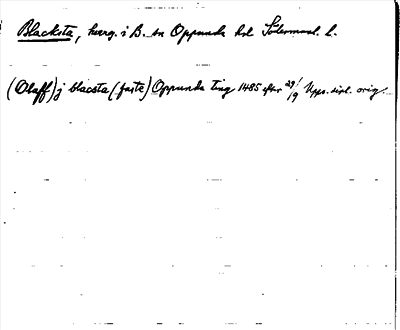 Blacksta, herrg. i B. sn Oppunda hd Södermanl. l.
(Olaff) j blacsta (faste) Oppunda ting 1485 efter 29/9 Upps. bibl. orig.